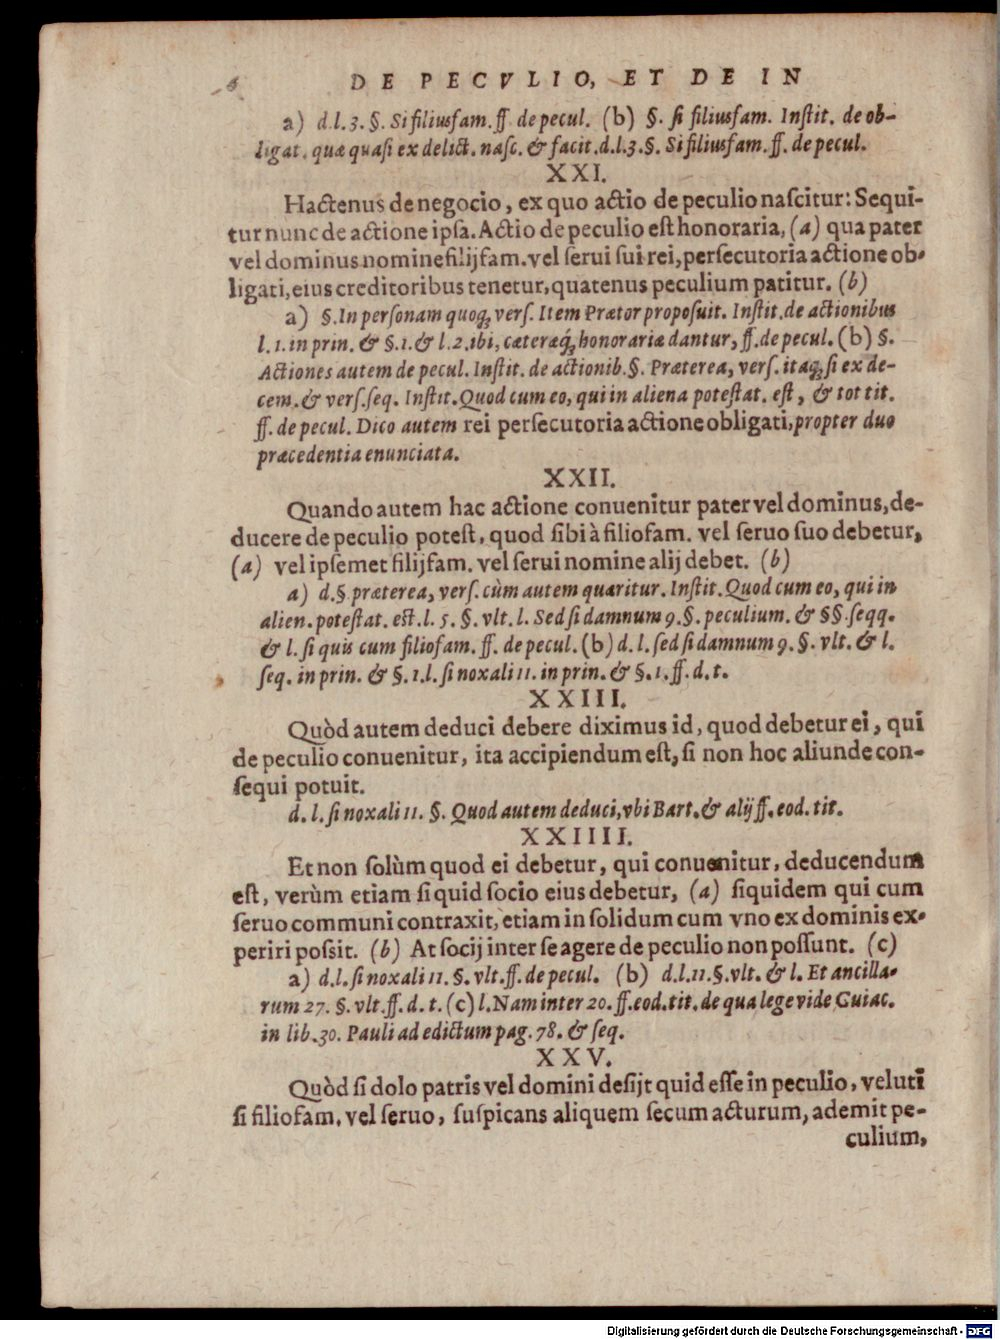 DE PECVLIO, ET DE IN
a) d.l.3. §. Si filiusfam. ff. de pecul. (b) §. ſi filiusfam. Inſtit. de ob-
ligat. quæ quaſi ex delict. naſc. & facit. d.l.3. §. Si filiusfam. ff. de pecul.
XXI.
Hactenus de negocio, ex quo actio de peculio naſcitur: Sequi-
tur nunc de actione ipſa. Actio de peculio eſt honoraria, (a) qua pater
vel dominus nomine filijfam. vel ſerui ſui rei, perſecutoria actione ob-
ligati, eius creditoribus tenetur, quatenus peculium patitur. (b)
a) §. In perſonam quoq; verſ. Item Prætor propoſuit. Inſtit. de actionibus
l. 1. in prin. & §. 1. & l. 2. ibi, cæteræq́; honorariæ dantur, ff. de pecul. (b) §.
Actiones autem de pecul. Inſtit. de actionib. §. Præterea, verſ. itaq; ſi ex de-
cem. & verſ. ſeq. Inſtit. Quod cum eo, qui in aliena poteſtat. eſt, & tot tit.
ff. de pecul. Dico autem rei perſecutoria actione obligati, propter duo
præcedentia enunciata.
XXII.
Quando autem hac actione conuenitur pater vel dominus, de-
ducere de peculio poteſt, quod ſibi à filiofam. vel ſeruo ſuo debetur,
(a) vel ipſemet filijfam. vel ſerui nomine alij debet. (b)
a) d. §. præterea, verſ. cùm autem quæritur. Inſtit. Quod cum eo, qui in
alien. poteſtat. eſt. l. 5. §. vlt. l. Sed ſi damnum 9. §. peculium. & §§. ſeqq.
& l. ſi quis cum filiofam. ff. de pecul. (b) d. l. ſed ſi damnum 9. §. vlt. & l.
ſeq. in prin. & §. 1. l. ſi noxali 11. in prin. & §. 1. ff. d. t.
XXIII.
Quòd autem deduci debere diximus id, quod debetur ei, qui
de peculio conuenitur, ita accipiendum eſt, ſi non hoc aliunde con-
ſequi potuit.
d. l. ſi noxali 11. §. Quod autem deduci, vbi Bart. & alij ff. eod. tit.
XXIIII.
Et non ſolùm quod ei debetur, qui conuenitur, deducendum
eſt, verùm etiam ſi quid ſocio eius debetur, (a) ſiquidem qui cum
ſeruo communi contraxit, etiam in ſolidum cum vno ex dominis ex-
periri poſsit. (b) At ſocij inter ſe agere de peculio non poſſunt. (c)
a) d. l. ſi noxali 11. §. vlt. ff. de pecul. (b) d. l. 11. §. vlt. & l. Et ancilla-
rum 27. §. vlt. ff. d. t. (c) l. Nam inter 20. ff. eod. tit. de qua lege vide Cuiac.
in lib. 30. Pauli ad edictum pag. 78. & ſeq.
XXV.
Quòd ſi dolo patris vel domini deſijt quid eſſe in peculio, veluti
ſi filiofam. vel ſeruo, ſuſpicans aliquem ſecum acturum, ademit pe-
culium,
Digitalisierung gefördert durch die Deutsche Forschungsgemeinschaft - DFG